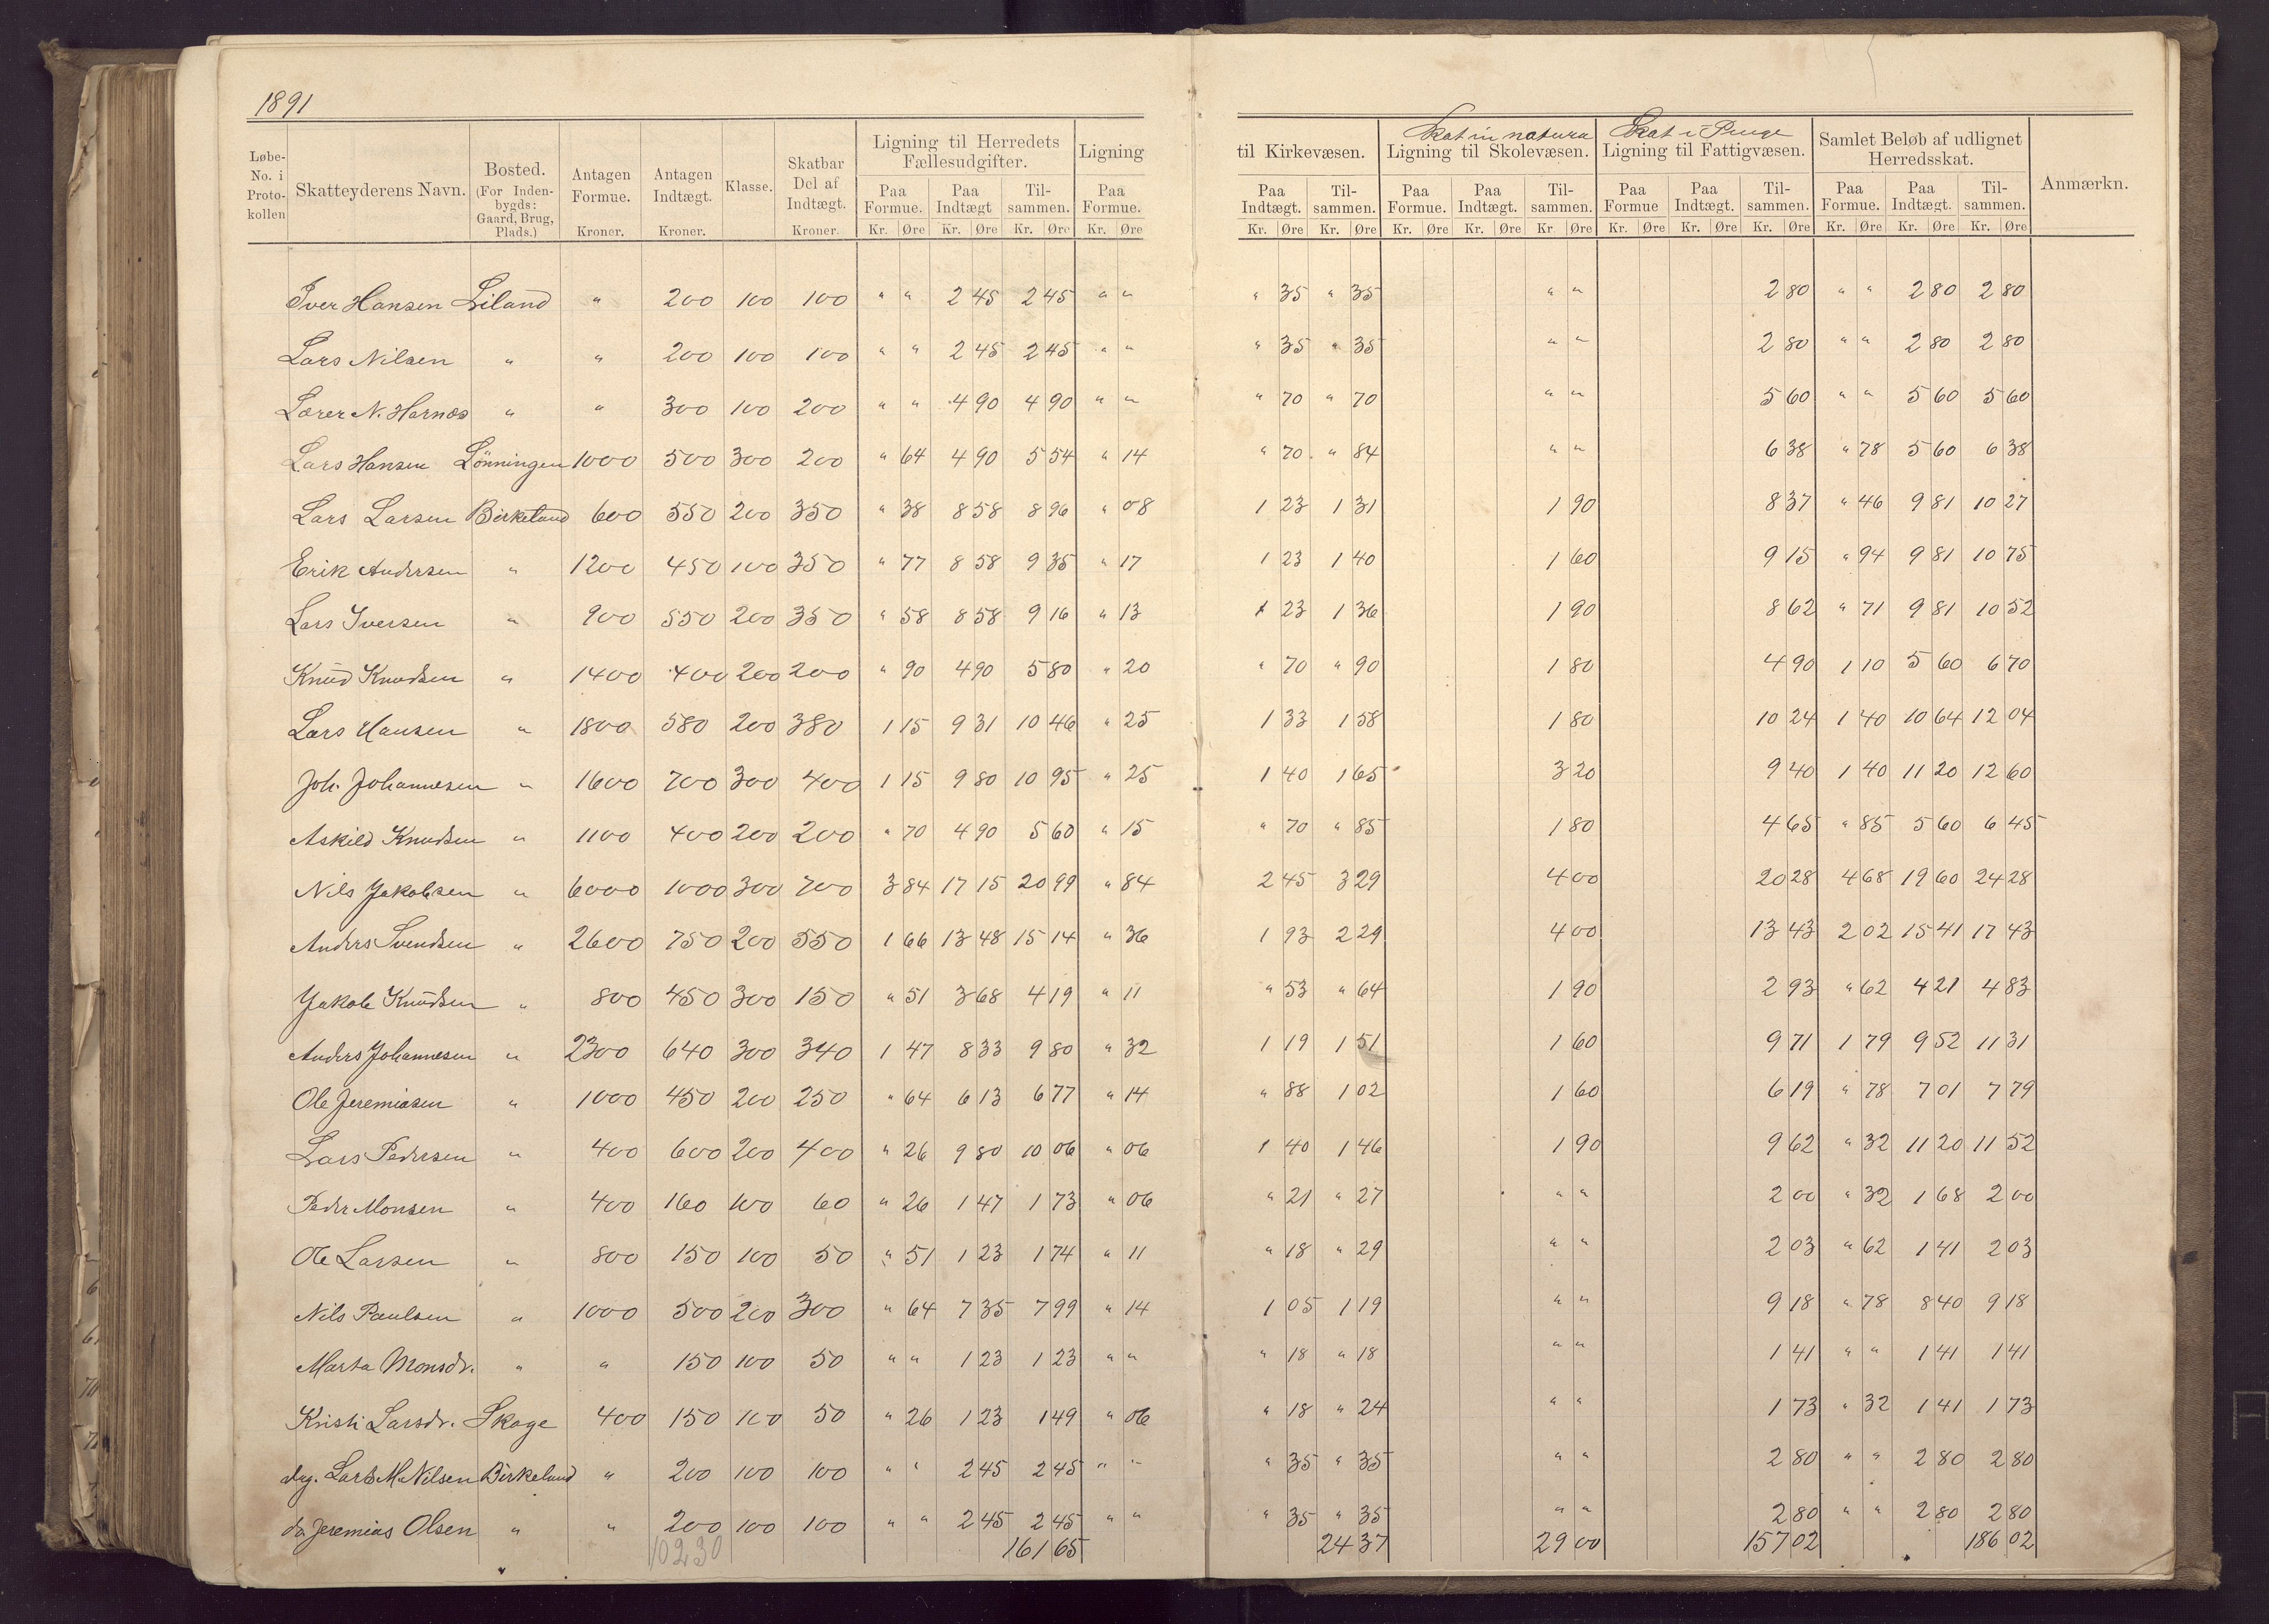 1891
Skat in natura Skat i Penge
Løbe-No. i Protokollen Skatteyderens Navn. Bosted. (For Indenbygds: Gaard, Brug, Plads.) Antagen Formue. Kroner. Antagen Indtægt. Kroner. Klasse. Skatbar Del af Indtægt. Kroner. Ligning til Herredets Fællesudgifter. Ligning til Kirkevæsen. Ligning til Skolevæsen. Ligning til Fattigvæsen. Samlet Beløb af udlignet Herredsskat. Anmærkn.
Paa Formue. Paa Indtægt Til-sammen. Paa Formue. Paa Indtægt. Til-sammen. Paa Formue. Paa Indtægt. Til-sammen. Paa Formue Paa Indtægt. Til-sammen. Paa Formue. Paa Indtægt. Til-sammen.
Kr. Øre Kr. Øre Kr. Øre Kr. Øre Kr. Øre Kr. Øre Kr. Øre Kr. Øre Kr Øre Kr. Øre Kr. Øre Kr. Øre Kr. Øre Kr. Øre Kr. Øre
Iver Hansen Liland " 200 100 100 " " 2 45 2 45 " " " 35 " 35 " " 2 80 " " 2 80 2 80
Lars Nilsen " " 200 100 100 " " 2 45 2 45 " " " 35 " 35 " " 2 80 " " 2 80 2 80
Lærer N. Harnæs " " 300 100 200 " " 4 90 4 90 " " " 70 " 70 " " 5 60 " " 5 60 5 60
Lars Hansen Lönningen 1000 500 300 200 " 64 4 90 5 54 " 14 " 70 " 84 " " 6 38 " 78 5 60 6 38
Lars Larsen Birkeland 600 550 200 350 " 38 8 58 8 96 " 08 1 23 1 31 1 90 8 37 " 46 9 81 10 27
Erik Andersen " 1200 450 100 350 " 77 8 58 9 35 " 17 1 23 1 40 1 60 9 15 " 94 9 81 10 75
Lars Iversen " 900 550 200 350 " 58 8 58 9 16 " 13 1 23 1 36 1 90 8 62 " 71 9 81 10 52
Knud Knudsen " 1400 400 200 200 " 90 4 90 5 80 " 20 " 70 " 90 1 80 4 90 1 10 5 60 6 70
Lars Hansen " 1800 580 200 380 1 15 9 31 10 46 " 25 1 33 1 58 1 80 10 24 1 40 10 64 12 04
Joh. Johannesen " 1600 700 300 400 1 15 9 80 10 95 " 25 1 40 1 65 3 20 9 40 1 40 11 20 12 60
Askild Knudsen " 1100 400 200 200 " 70 4 90 5 60 " 15 " 70 " 85 1 80 4 65 " 85 5 60 6 45
Nils Jakobsen " 6000 1000 300 700 3 84 17 15 20 99 " 84 2 45 3 29 4 00 20 28 4 68 19 60 24 28
Anders Svendsen " 2600 750 200 550 1 66 13 48 15 14 " 36 1 93 2 29 4 00 13 43 2 02 15 41 17 43
Jakob Knudsen " 800 450 300 150 " 51 3 68 4 19 " 11 " 53 " 64 1 90 2 93 " 62 4 21 4 83
Anders Johannesen " 2300 640 300 340 1 47 8 33 9 80 " 32 1 19 1 51 1 60 9 71 1 79 9 52 11 31
Ole Jeremiasen " 1000 450 200 250 " 64 6 13 6 77 " 14 " 88 1 02 1 60 6 19 " 78 7 01 7 79
Lars Pedersen " 400 600 200 400 " 26 9 80 10 06 " 06 1 40 1 46 1 90 9 62 " 32 11 20 11 52
Peder Monsen " 400 160 100 60 " 26 1 47 1 73 " 06 " 21 " 27 " " 2 00 " 32 1 68 2 00
Ole Larsen " 800 150 100 50 " 51 1 23 1 74 " 11 " 18 " 29 " " 2 03 " 62 1 41 2 03
Nils Paulsen " 1000 500 200 300 " 64 7 35 7 99 " 14 1 05 1 19 " " 9 18 " 78 8 40 9 18
Marta Monsdr. " " 150 100 50 " " 1 23 1 23 " " " 18 " 18 " " 1 41 " " 1 41 1 41
Kristi Larsdr. Skage 400 150 100 50 " 26 1 23 1 49 " 06 " 18 " 24 " " 1 73 " 32 1 41 1 73
dag. Lars M. Nilsen Birkeland " 200 100 100 " " 2 45 2 45 " " " 35 " 35 " " 2 80 " " 2 80 2 80
do Jeremias Olsen " " 200 100 100 " " 2 45 2 45 " " " 35 " 35 " " 2 80 " " 2 80 2 80
10230 161 65 24 37 29 00 157 02 186 02